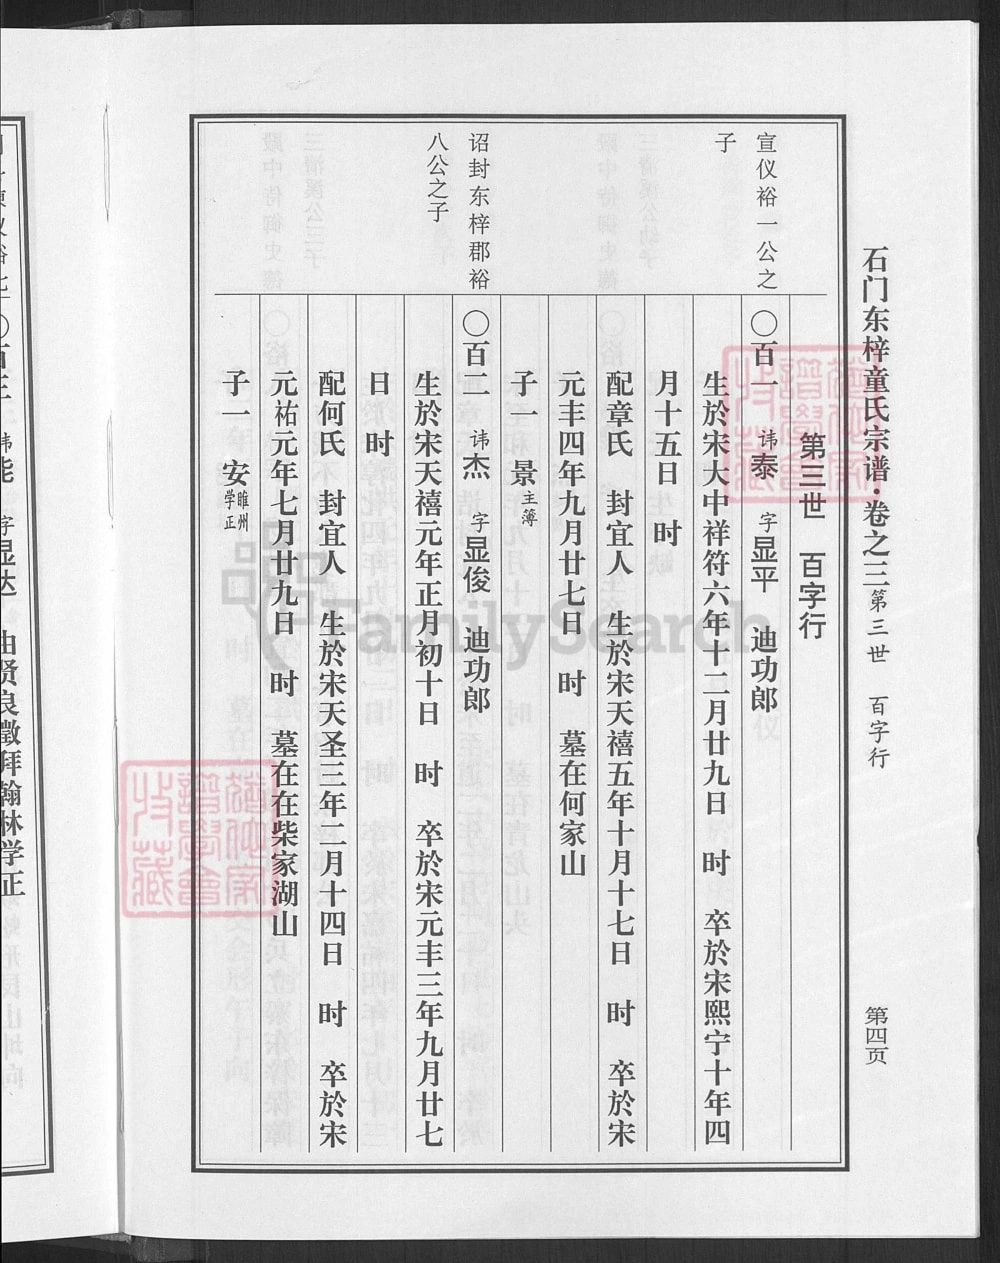 石门东梓童氏宗谱·卷之三 第三世 百字行
第四页
第三世 百字行
宣仪裕一公之
子
〇百一 讳泰 字显平 迪功郎
生於宋大中祥符六年十二月廿九日 时 卒於宋熙宁十年四
月十五日 时
配章氏 封宜人 生於宋天禧五年十月十七日 时 卒於宋
元丰四年九月廿七日 时 墓在何家山
子一 景 主簿
诏封东梓郡裕
八公之子
〇百二 讳杰 字显俊 迪功郎
生於宋天禧元年正月初十日 时 卒於宋元丰三年九月廿七
日 时
配何氏 封宜人 生於宋天圣三年二月十四日 时 卒於宋
元祐元年七月廿九日 时 墓在在柴家湖山
子一 安 睢州学正
字显达 由贤良徵拜翰林学正
FamilySearch